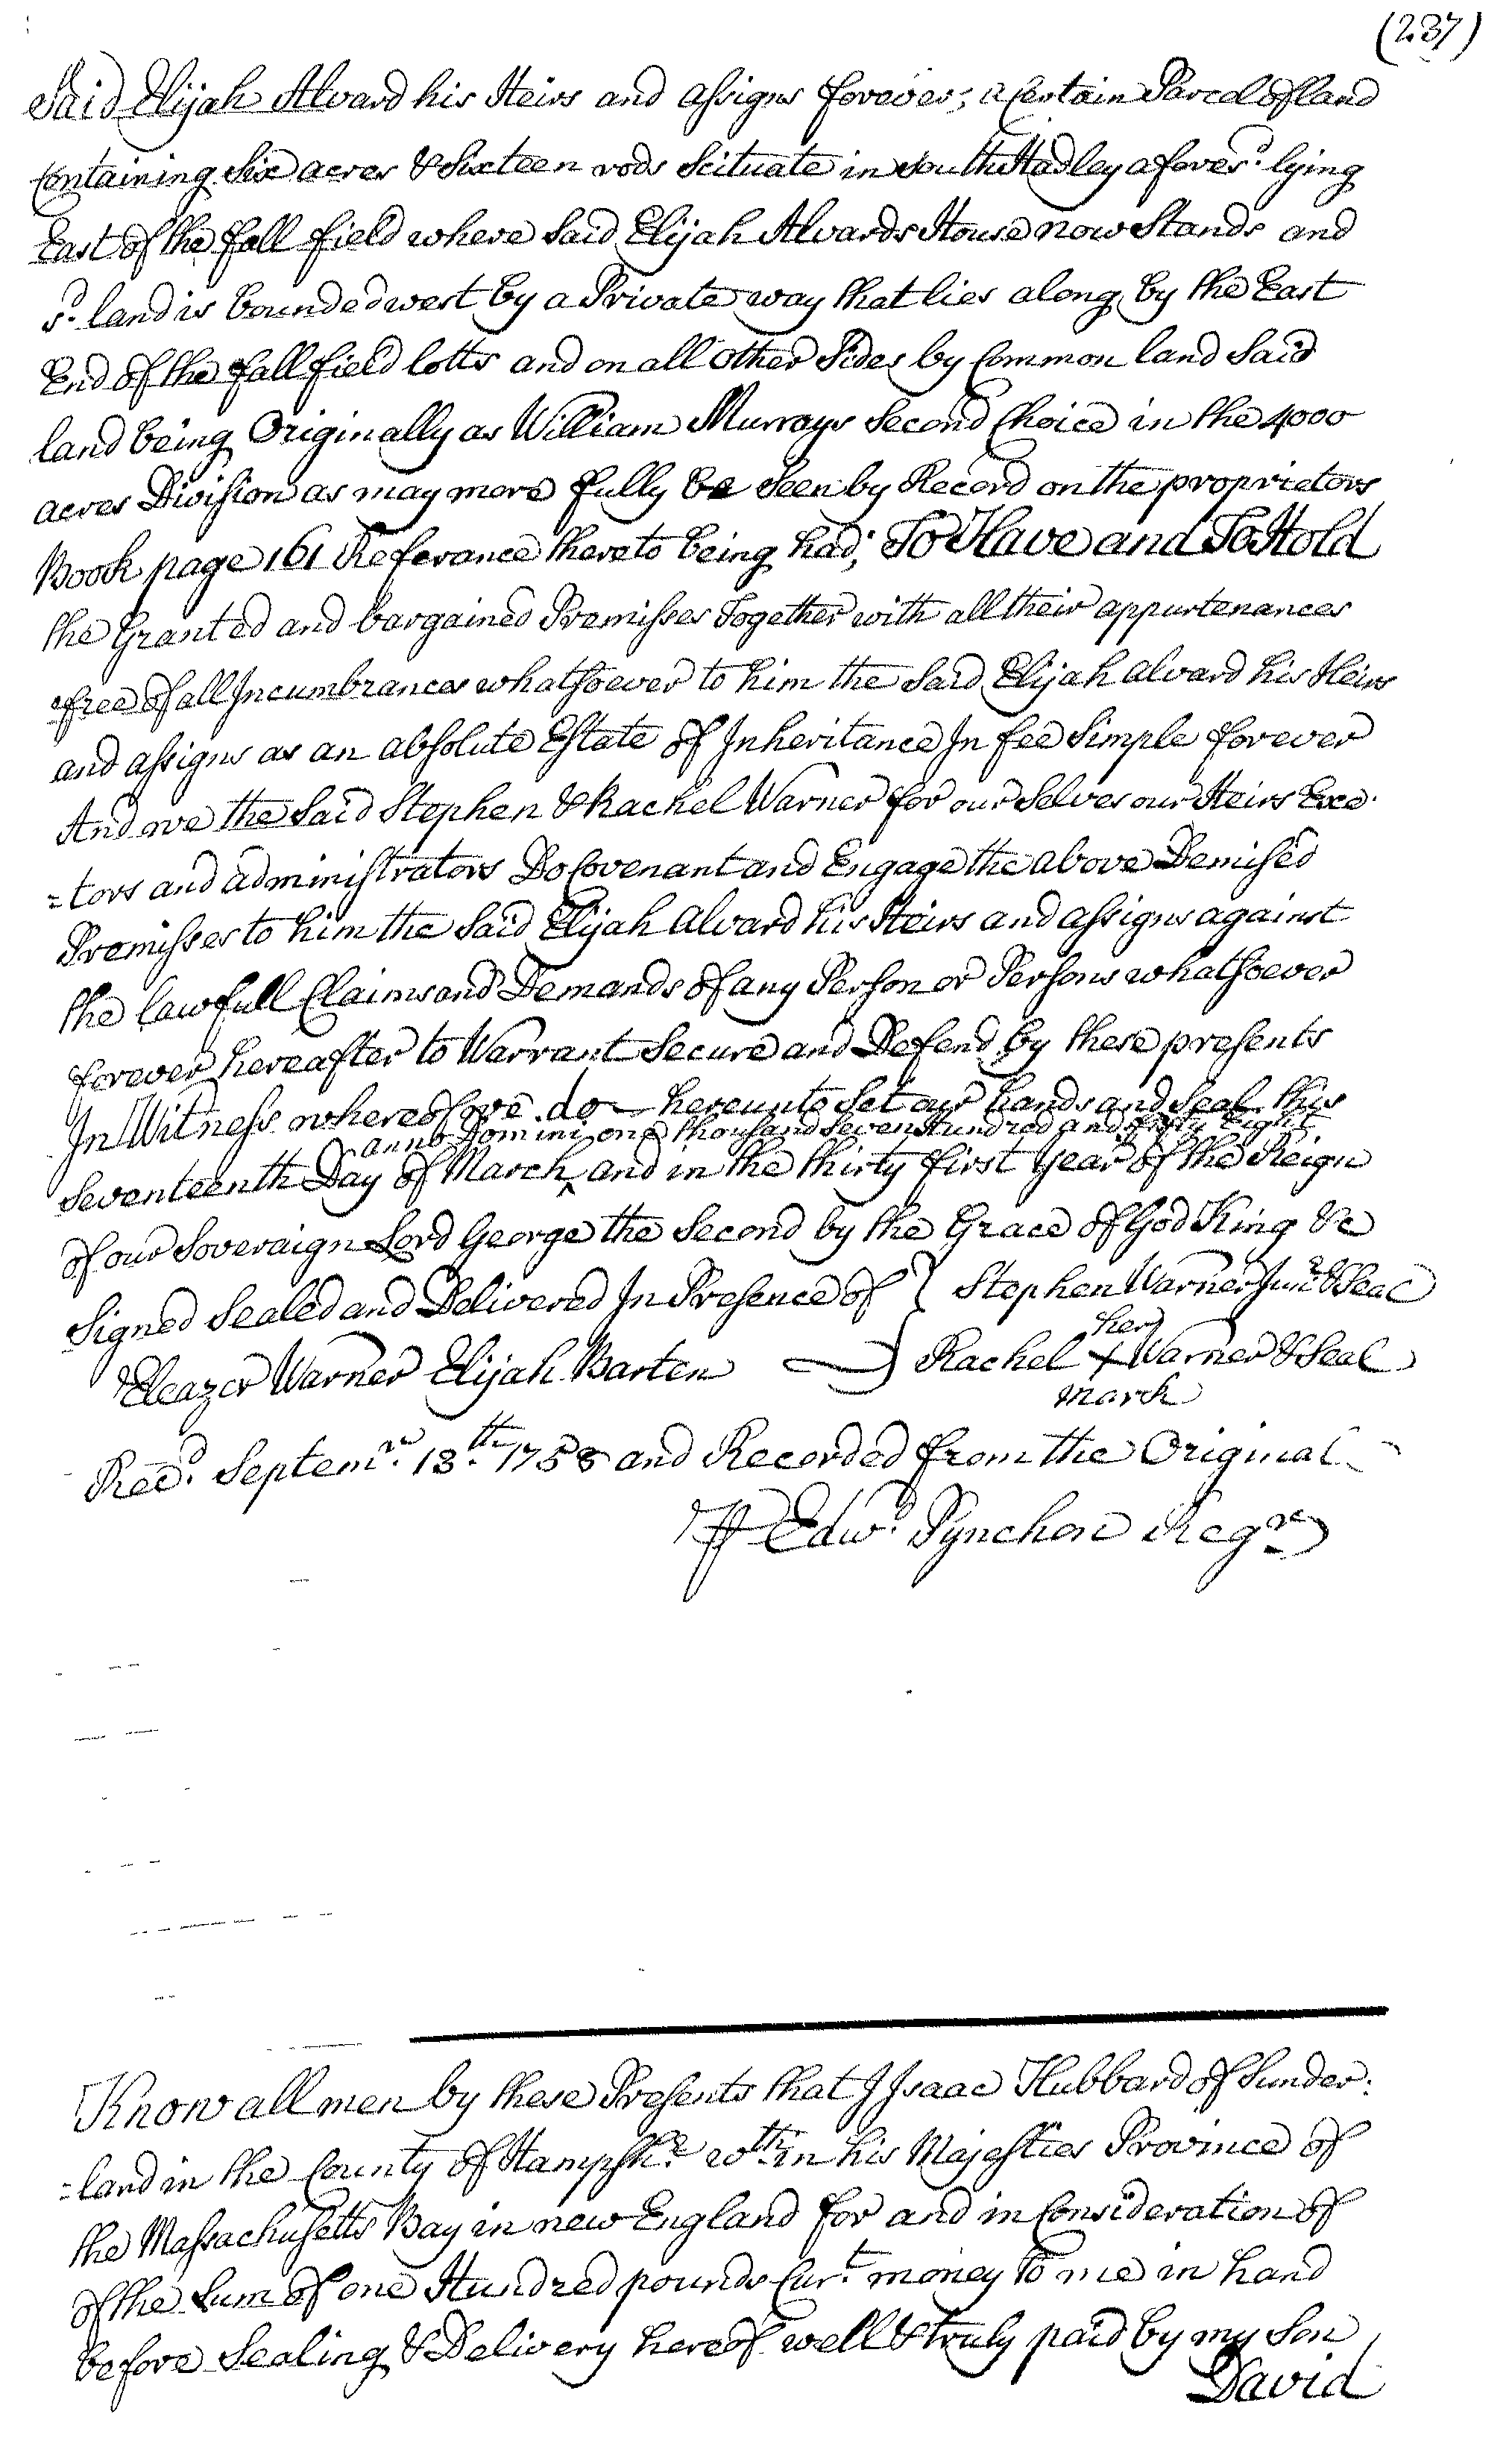 (237)
Said Elijah Alvard his Heirs and assigns forever; a Certain Parcel of land
Containing Six acres & Sixteen rods Scituate in South Hadley afores.d lying
East of the fall field where Said Elijah Alvards House now Stands and
s.d land is bounded west by a Private way that lies along by the East
End of the fall field lotts and on all other Sides by Common land Said
land being Originally as William Murrays Second Choice in the 4000
acres Division as may more fully be Seen by Record on the proprietors
Book page 161 Referance thereto being had; To Have and To Hold
the Granted and bargained Premisses Together with all their appurtenances
free of all Incumbrances whatsoever to him the Said Elijah Alvard his Heirs
and assigns as an absolute Estate of Inheritance In fee Simple forever
And we the Said Stephen & Rachel Warner for our Selves our Heirs Exe-
=tors and administrators Do Covenant and Engage the above Demised
Premisses to him the Said Elijah Alvard his Heirs and assigns against
the lawfull Claims and Demands of any Person or Persons whatsoever
forever hereafter to Warrant Secure and Defend by these presents
In Witness whereof we do hereunto Set our hands and Seal this
anno Domini one thousand Seven Hundred and fifty Eight
Seventeenth Day of March ^ and in the thirty first Year of the Reign
of our Soveraign Lord George the Second by the Grace of God King &c
Signed Sealed and Delivered In Presence of } Stephen Warner Junr & Seal
her
Eleazer Warner Elijah Barten } Rachel X Warner & Seal
march
Rec.d Septem.r 13.th 1758 and Recorded from the Original
P Edw.d Pynchon Reg.r
Know all men by these Presents that I Isaac Hubbard of Sunder-
=land in the County of Hampsh.r wth.in his Majesties Province of
the Massachusetts Bay in new England for and in Consideration of
of the Sum of one Hundred pounds Cur.t money to me in hand
before Sealing & Delivery hereof well & truly paid by my Son
David